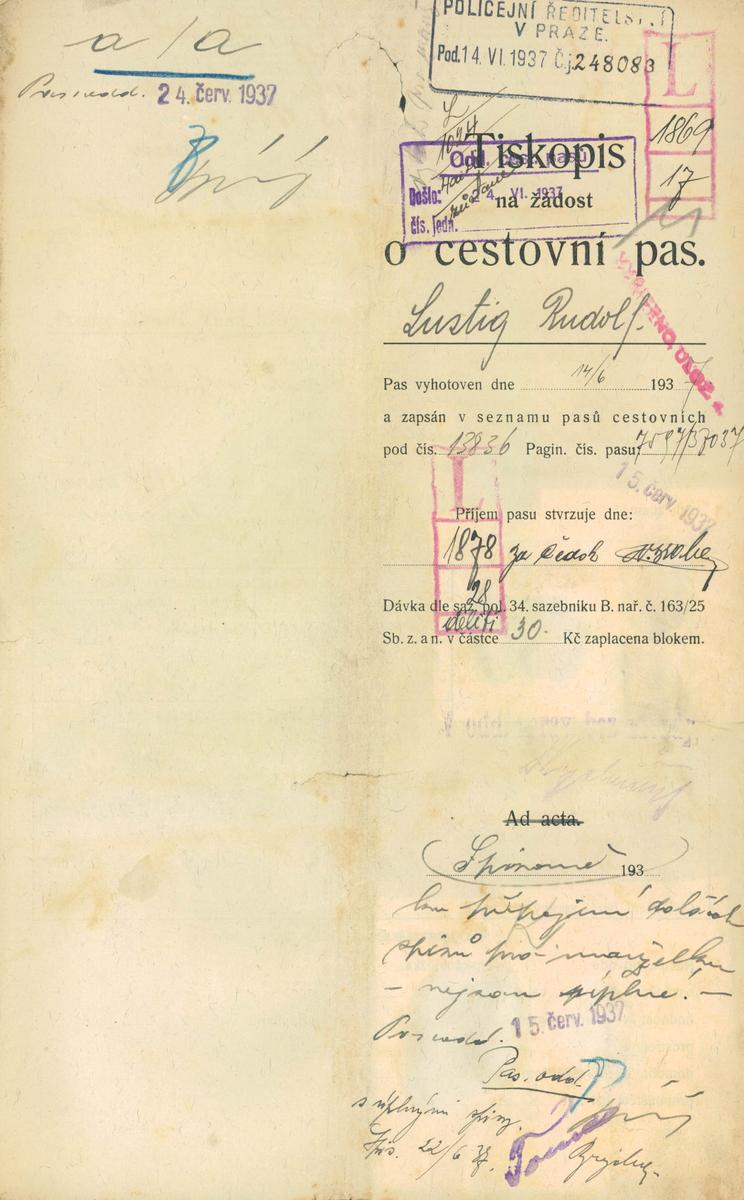 a/a
24. červ. 1937
POLICEJNÍ ŘEDITELSTVÍ
V PRAZE.
Pod. 14. VI. 1937 Č.j. 248083
L
1869
17
L
1024
Tiskopis
Odd. cest. pasů
Došlo: 24. VI. 1937
čís. jedn.
na žádost
o cestovní pas.
VYŘÍZENO,
Lustig Rudolf.
Pas vyhotoven dne 14/6 1937
a zapsán v seznamu pasů cestovních
pod čís. 13836 Pagin. čís. pasu: 7597/37037
15. červ. 1937
L
Příjem pasu stvrzuje dne:
1878 za Čedok
28
Dávka dle saz. pol. 34. sazebníku B. nař. č. 163/25
Sb. z. a n. v částce 30.- Kč zaplacena blokem.
Ad acta.
Spisovně 193
ku připojení dalších
spisů pro manželku
– nejsou úplné! –
15. červ. 1937
Pas. odd.
s úplnými spisy.
22/6 37.